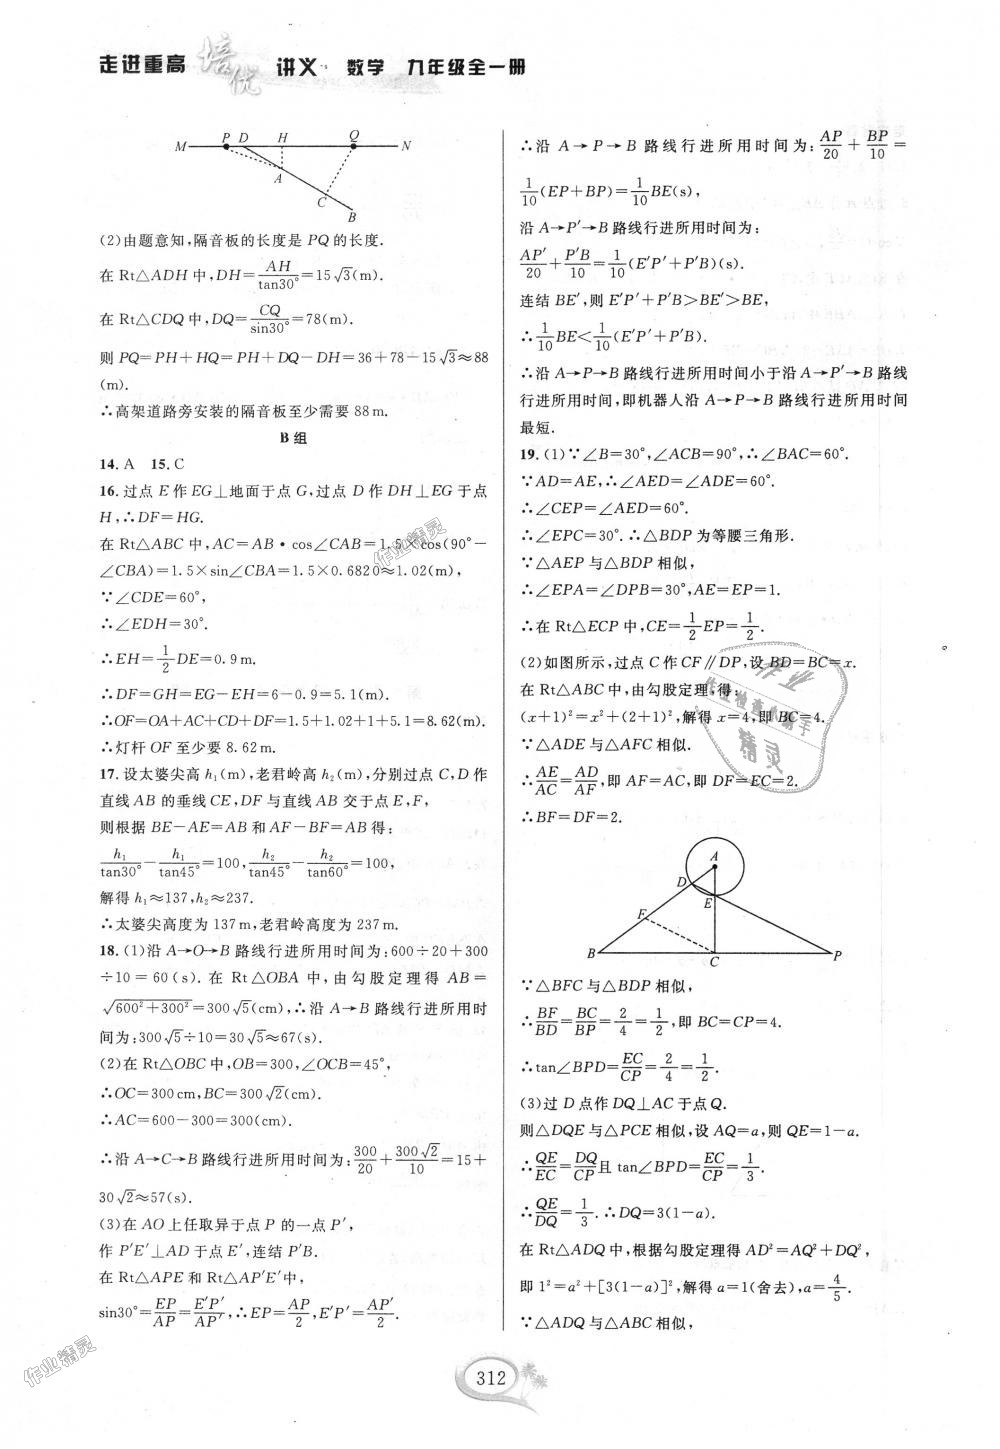 走进重高 培优 讲义 数学 九年级全一册
M P D H Q N
A
C
B
(2)由题意知,隔音板的长度是 PQ 的长度.
在 Rt△ADH 中,DH=AH/tan30°=15√3(m).
在 Rt△CDQ 中,DQ=CQ/sin30°=78(m).
则 PQ=PH+HQ=PH+DQ-DH=36+78-15√3≈88
(m).
∴高架道路旁安装的隔音板至少需要 88 m.
B 组
14. A 15. C
16. 过点 E 作 EG⊥地面于点 G,过点 D 作 DH⊥EG 于点
H,∴DF=HG.
在 Rt△ABC 中,AC=AB·cos∠CAB=1.5×cos(90°-
∠CBA)=1.5×sin∠CBA=1.5×0.6820≈1.02(m),
∵∠CDE=60°,
∴∠EDH=30°.
∴EH=1/2DE=0.9 m.
∴DF=GH=EG-EH=6-0.9=5.1(m).
∴OF=OA+AC+CD+DF=1.5+1.02+1+5.1=8.62(m).
∴灯杆 OF 至少要 8.62 m.
17. 设太婆尖高 h₁(m),老君岭高 h₂(m),分别过点 C,D 作
直线 AB 的垂线 CE,DF 与直线 AB 交于点 E,F,
则根据 BE-AE=AB 和 AF-BF=AB 得:
h₁/tan30°-h₁/tan45°=100,h₂/tan45°-h₂/tan60°=100,
解得 h₁≈137,h₂≈237.
∴太婆尖高度为 137 m,老君岭高度为 237 m.
18. (1)沿 A→O→B 路线行进所用时间为:600÷20+300
÷10=60(s). 在 Rt△OBA 中,由勾股定理得 AB=
√(600²+300²)=300√5(cm),∴沿 A→B 路线行进所用时
间为:300√5÷10=30√5≈67(s).
(2)在 Rt△OBC 中,OB=300,∠OCB=45°,
∴OC=300 cm,BC=300√2(cm).
∴AC=600-300=300(cm).
∴沿 A→C→B 路线行进所用时间为:300/20+300√2/10=15+
30√2≈57(s).
(3)在 AO 上任取异于点 P 的一点 P′,
作 P′E′⊥AD 于点 E′,连结 P′B.
在 Rt△APE 和 Rt△AP′E′中,
sin30°=EP/AP=E′P′/AP′,∴EP=AP/2,E′P′=AP′/2.
∴沿 A→P→B 路线行进所用时间为:AP/20+BP/10=
1/10(EP+BP)=1/10BE(s),
沿 A→P′→B 路线行进所用时间为:
AP′/20+P′B/10=1/10(E′P′+P′B)(s).
连结 BE′,则 E′P′+P′B>BE′>BE,
∴1/10BE<1/10(E′P′+P′B).
∴沿 A→P→B 路线行进所用时间小于沿 A→P′→B 路线
行进所用时间,即机器人沿 A→P→B 路线行进所用时间
最短.
19. (1)∵∠B=30°,∠ACB=90°,∴∠BAC=60°.
∵AD=AE,∴∠AED=∠ADE=60°.
∴∠CEP=∠AED=60°.
∴∠EPC=30°.∴△BDP 为等腰三角形.
∵△AEP 与△BDP 相似,
∴∠EPA=∠DPB=30°,AE=EP=1.
∴在 Rt△ECP 中,CE=1/2EP=1/2.
(2)如图所示,过点 C 作 CF∥DP,设 BD=BC=x.
在 Rt△ABC 中,由勾股定理,得:
(x+1)²=x²+(2+1)²,解得 x=4,即 BC=4.
∵△ADE 与△AFC 相似.
∴AE/AC=AD/AF,即 AF=AC,即 DF=EC=2.
∴BF=DF=2.
A
D
E
F
B C P
∵△BFC 与△BDP 相似,
∴BF/BD=BC/BP=2/4=1/2,即 BC=CP=4.
∴tan∠BPD=EC/CP=2/4=1/2.
(3)过 D 点作 DQ⊥AC 于点 Q.
则△DQE 与△PCE 相似,设 AQ=a,则 QE=1-a.
∴QE/EC=DQ/CP且 tan∠BPD=EC/CP=1/3.
∴QE/DQ=1/3.∴DQ=3(1-a).
在 Rt△ADQ 中,根据勾股定理得 AD²=AQ²+DQ²,
即 1²=a²+[3(1-a)]²,解得 a=1(舍去),a=4/5.
∵△ADQ 与△ABC 相似,
312
作业精灵
作业精灵
作业
作业检查小助手
精灵